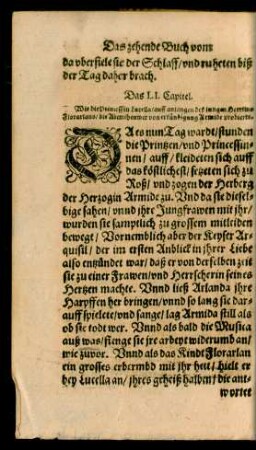 Das zehende Buch vom
da vberfiele sie der Schlaff/ vnd ruheten biß
der Tag daher brach.
Das LI. Capitel.
Wie die Princessin Lucella/ auff anlangen des jungen Herrens
Florarlans/ die Abentheuwer von erkündigung Armide probierte.
DA es nun Tag wardt/ stunden
die Printzen/ vnd Princessin-
nen/ auff/ kleideten sich auff
das köstlichest/ setzeten sich zu
Roß/ vnd zogen der Herberg
der Hertzogin Armide zu. Vnd da sie diesel-
bige sahen/ vnnd jhre Jungfrawen mit jhr/
wurden sie samptlich zu grossem mitleiden
bewegt/ Vornemblich aber der Keyser Ar-
quisil/ der im ersten Anblick in jhrer Liebe
also entzündet war/ daß er von derselben zeit
sie zu einer Frawen/ vnd Herrscherin seines
Hertzen machte. Vnnd ließ Arlanda jhre
Harpffen her bringen/ vnnd so lang sie dar-
auff spielete/ vnd sange/ lag Armida still als
ob sie todt wer. Vnnd als bald die Musica
auß was/ fienge sie jre arbeyt widerumb an/
wie zuvor. Vnnd als das Kindt Florarlan
ein grosses erbermbd mit jhr hett/ hielt er
bey Lucella an/ jhres geheiß halben/ die ant-
wortet